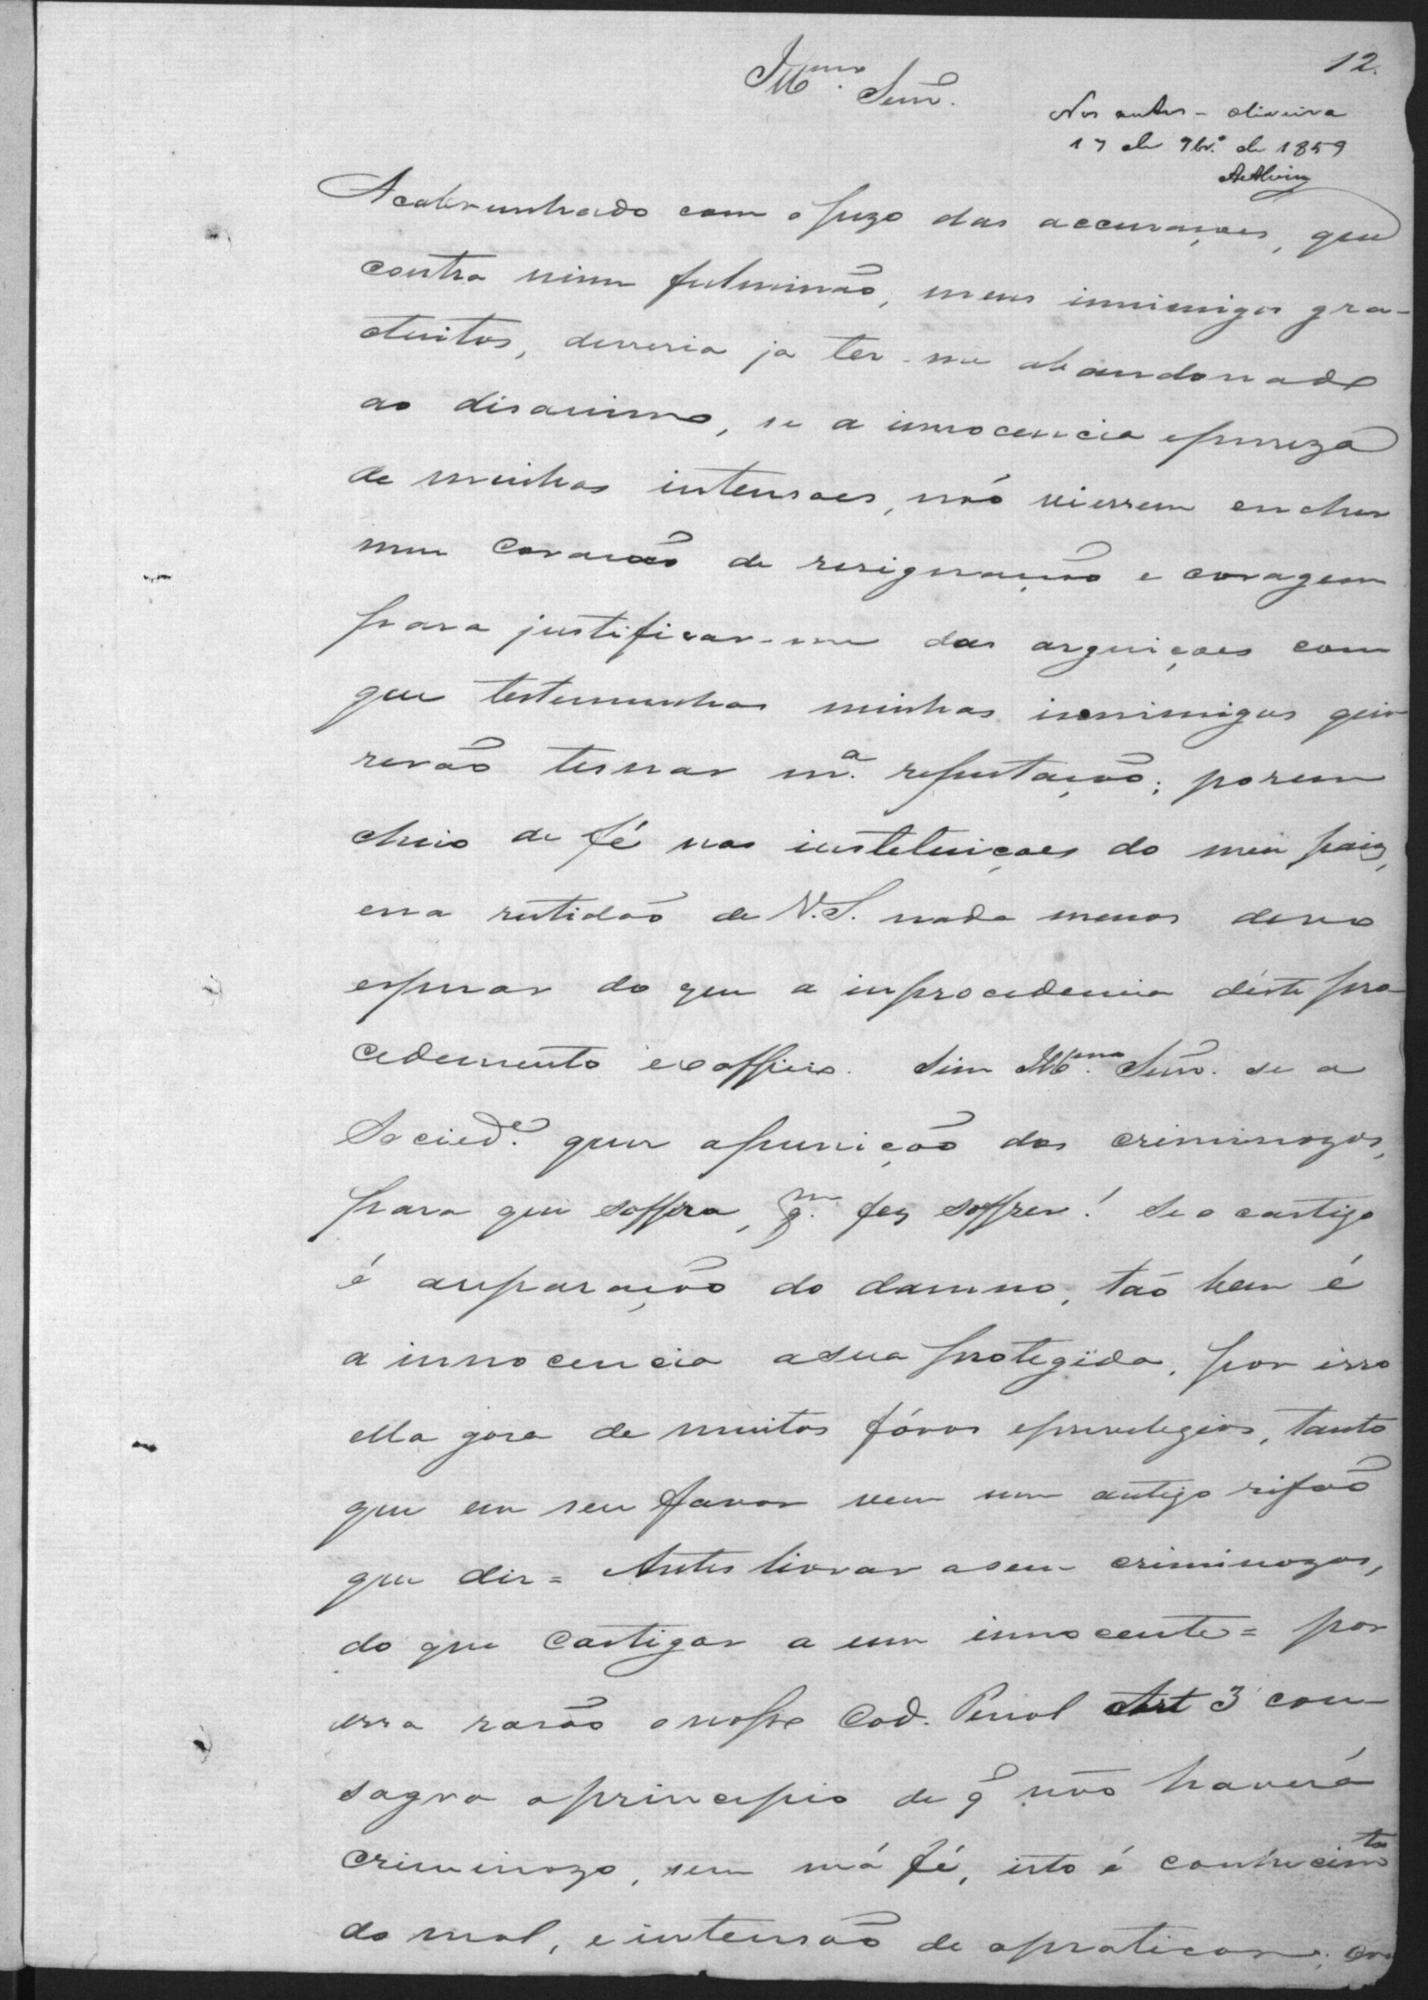 12.
Illmo. Senr.
Nos autos - Oliveira
17 de 9br.º de 1859
Acabrunhado com o pezo das accusaçoes, que
contra mim fulminão, meus inimigos gra-
tuitos, deveria ja ter-me abandonado
ao disanimo, se a innocencia epureza
de minhas intensoes, não viessem encher
meu Coração de resignação e coragem
para justificar-me das arguiçoes com
que testemunhas minhas inimigas qui-
rerão tisnar m.ª reputação; porem
cheio de fé nas instetuiçoes do meu paiz,
ena retidão de V.S. nada menos devo
esperar do que a improcedencia déste pro
cedemento exofficio. Sim Illmo. Senr. se a
Socied.e quer apunição dos criminozos,
para que soffra, q.m fez soffrer! Se o castigo
é areparação do damno, tão bem é
a innocencia asua protegida, por isso
ella gosa de muitos fóros eprivelegios, tanto
que em seu favor vem um antigo rifão
que diz = Antes livrar asem criminozos,
do que Castigar a um innocente = por
essa rasão onosso Cod. Penal Art 3 con-
sagra oprincipio de q̃ não haverá
Criminozo, sem má fé, isto é conhecimto
do mal, eintensão de opraticar;